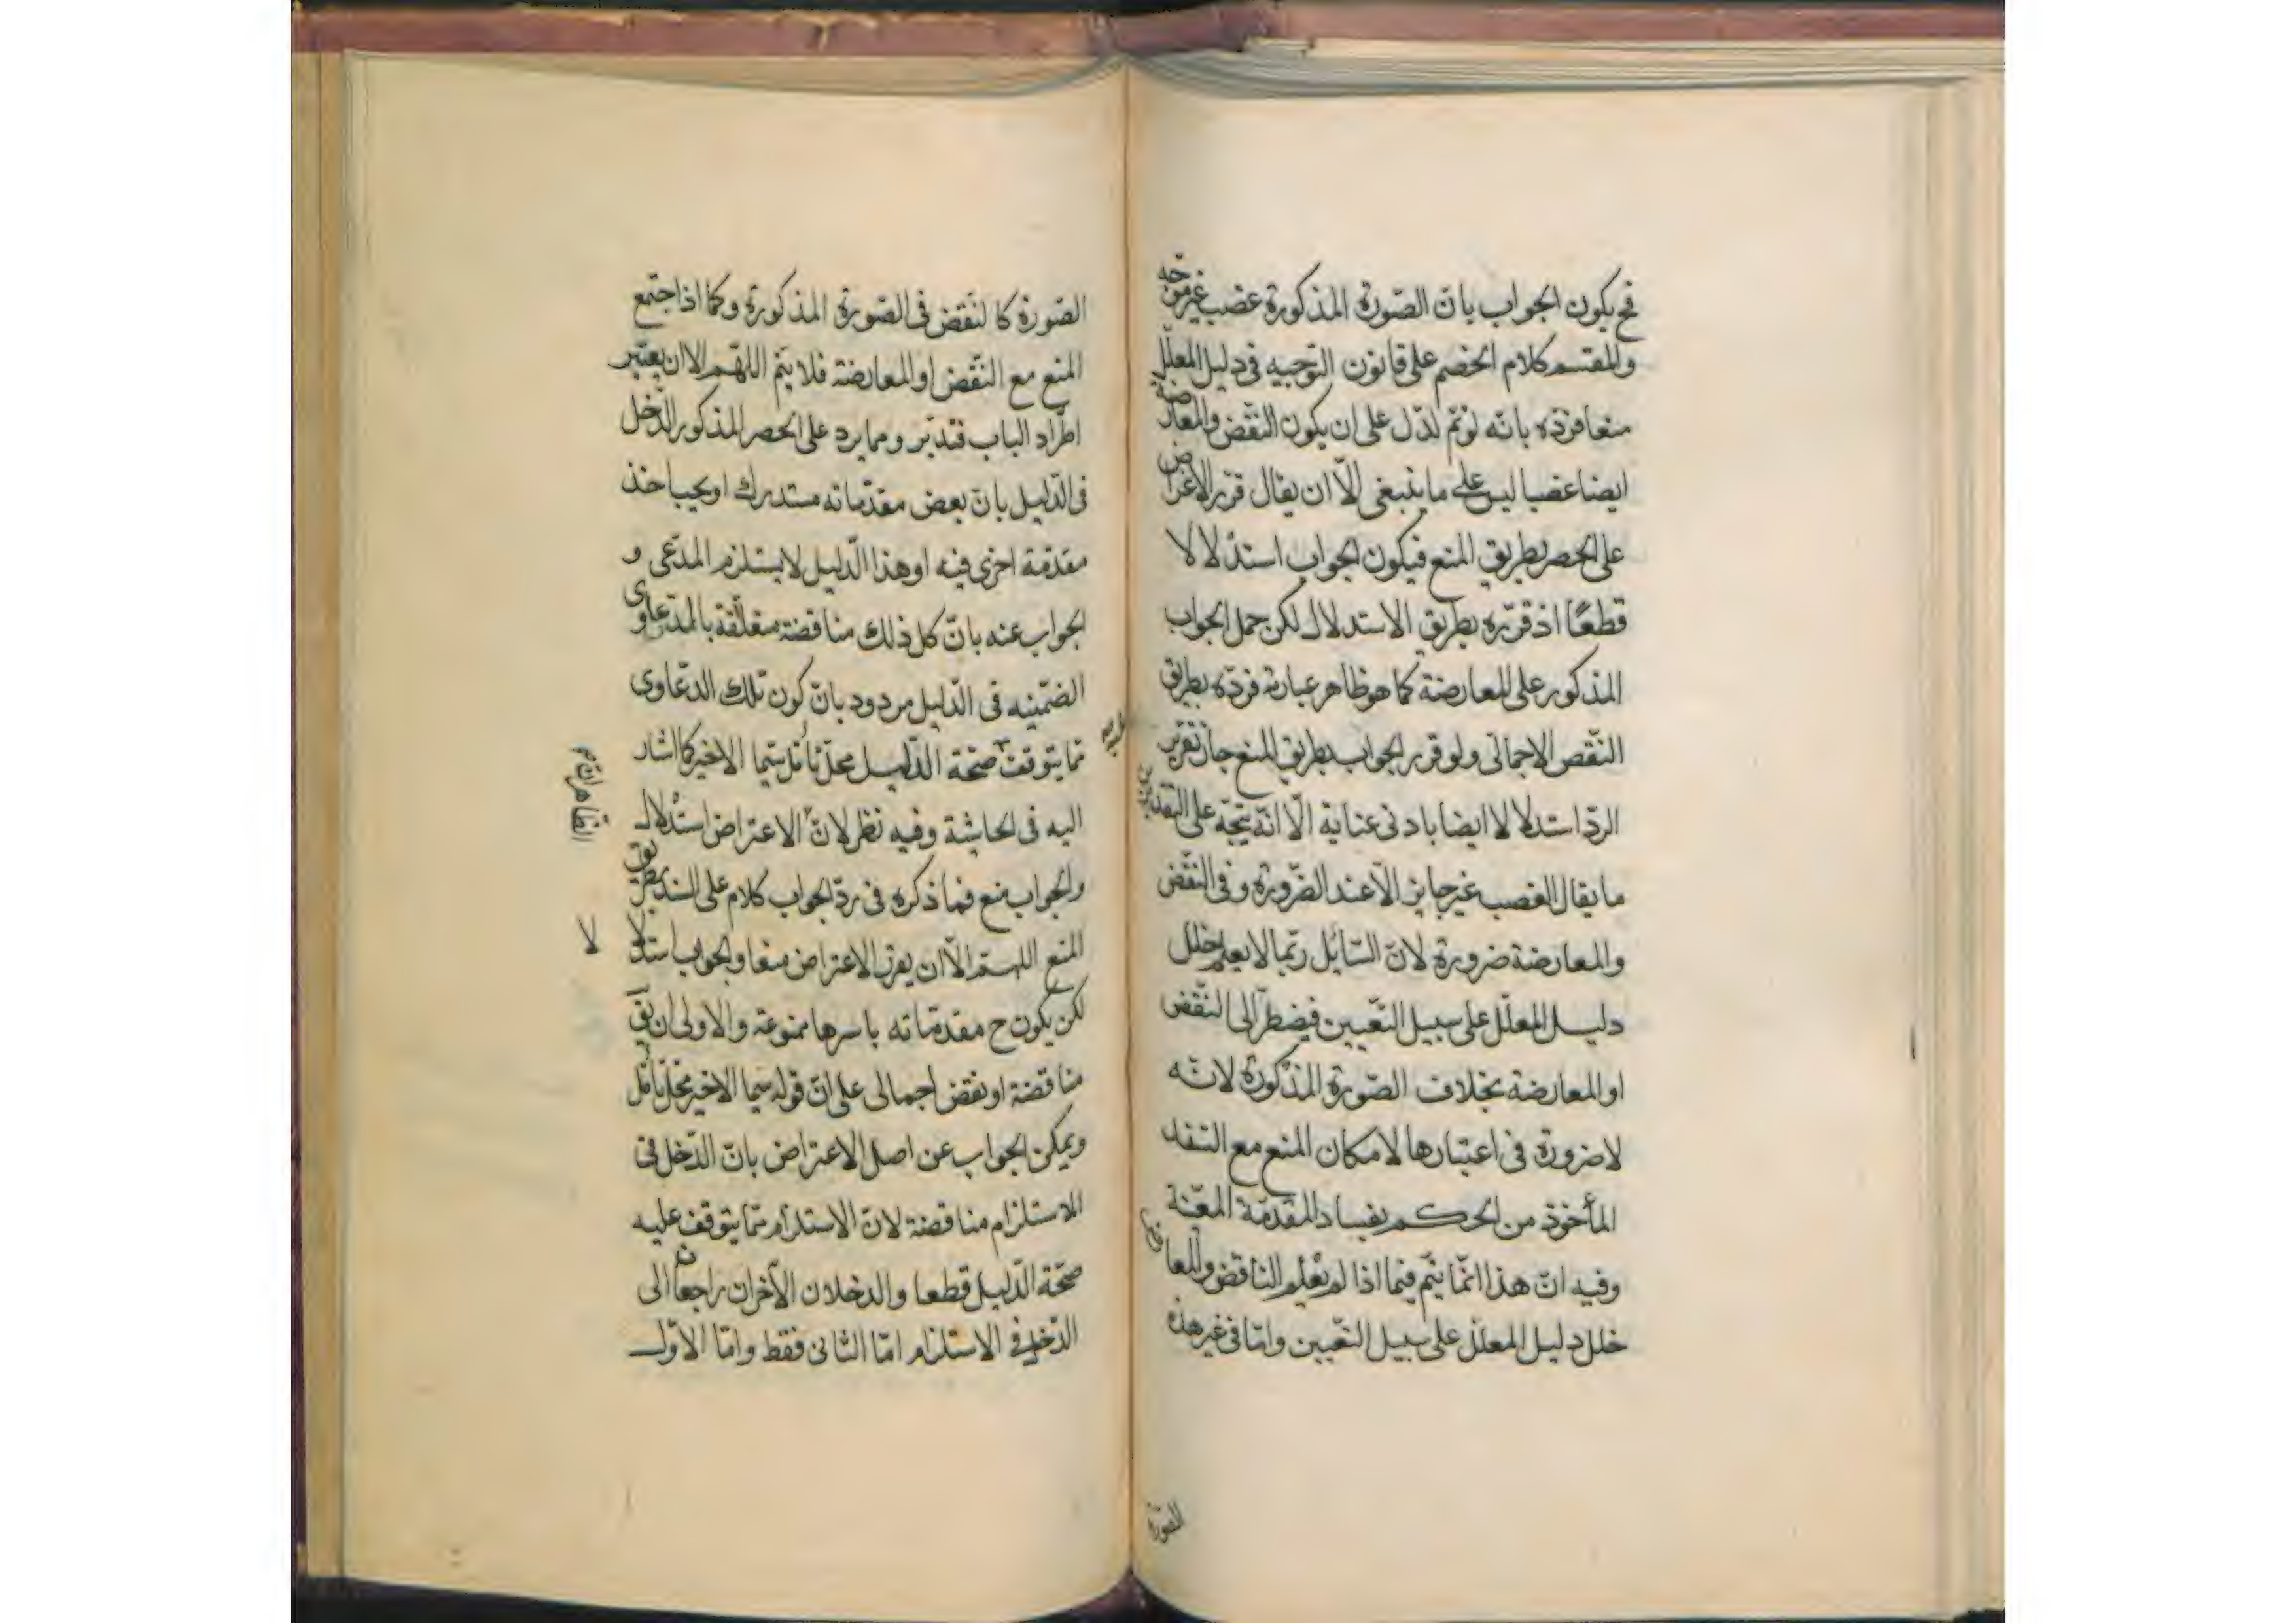 فح يكون الجواب بان الصّورة المذكورة غصب غير موجّه
والمقسم كلام الخصم على قانون التوجيه فى دليل المعلّل
منعا فردّه بانّه لو تمّ لدّل على ان يكون النّقض والمعارضة
ايضا غصبا ليس على ما ينبغى الّا ان يقال قرّر الاعتراض
على الحصر بطريق المنع فيكون الجواب استدلالا
قطعًا اذ قرّره بطريق الاستدلال لكن حمل الجواب
المذكور على المعارضة كما هو ظاهر عبارته فردّه بطريق
النّقض الاجمالى ولو قرر الجواب بطريق المنع جاز تقرير
الردّ استدلالا ايضا بادنى عناية الّا انّه يتجّه على التقديرين
ما يقال الغصب غير جايز الّا عند الضّرورة وفى النّقض
والمعارضة ضرورة لانّ السّائل ربّما لا يعلم خلل
دليل المعلّل على سبيل التّعيين فيضطرّ الى النّقض
او المعارضة بخلاف الصّورة المذكورة لانّه
لا ضرورة فى اعتبارها لامكان المنع مع السّند
المأخوذ من الحكم بفساد المقدّمة المعيّنة
وفيه انّ هذا انّما يتمّ فيما اذا لم يعلم الناقض والمعارض
خلل دليل المعلّل على سبيل التّعيين وامّا فى غير هذه
الصّورة
الصّورة كالنّقض فى الصّورة المذكورة وكما اذا اجتمع
المنع مع النّقض او المعارضة فلا يتمّ اللّهّم الا ان يعتبر
اطّراد الباب فتدبّر ومما يرد على الحصر المذكور الدّخل
فى الدّليل بانّ بعض مقدّماته مستدرك او يجب اخذ
مقدّمة اخرى فيه او هذا الدّليل لا يستلزم المدّعى و
الجواب عنه بانّ كل ذلك مناقضة متعلّقة بالدّعاوى
الضّمنيه فى الدّليل مردود بانّ كون تلك الدّعاوى
ممّا يتوقف صحّة الدّليل محلّ تأمّل سيّما الاخير كما اشار
اليه فى الحاشية وفيه نظر لانّ الاعتراض استدلال
والجواب منع فما ذكره فى ردّ الجواب كلام على السند بطريق
المنع اللهّم الّا ان يقرّر الاعتراض منعا والجواب استدلالا
لكن يكون ح مقدّماته باسرها ممنوعة والاولى ان يقّ
مناقضة او نقض اجمالى على انّ قوله سيما الاخير محلّ تأمّل
ويمكن الجواب عن اصل الاعتراض بانّ الدّخل فى
الاستلزام مناقضة لانّ الاستلزام ممّا يتوقف عليه
صحّة الدّليل قطعا والدخلان الآخران راجعان الى
الدّخل فى الاستلزام امّا الثانى فقط وامّا الاوّل
الظاهر انّه
لا